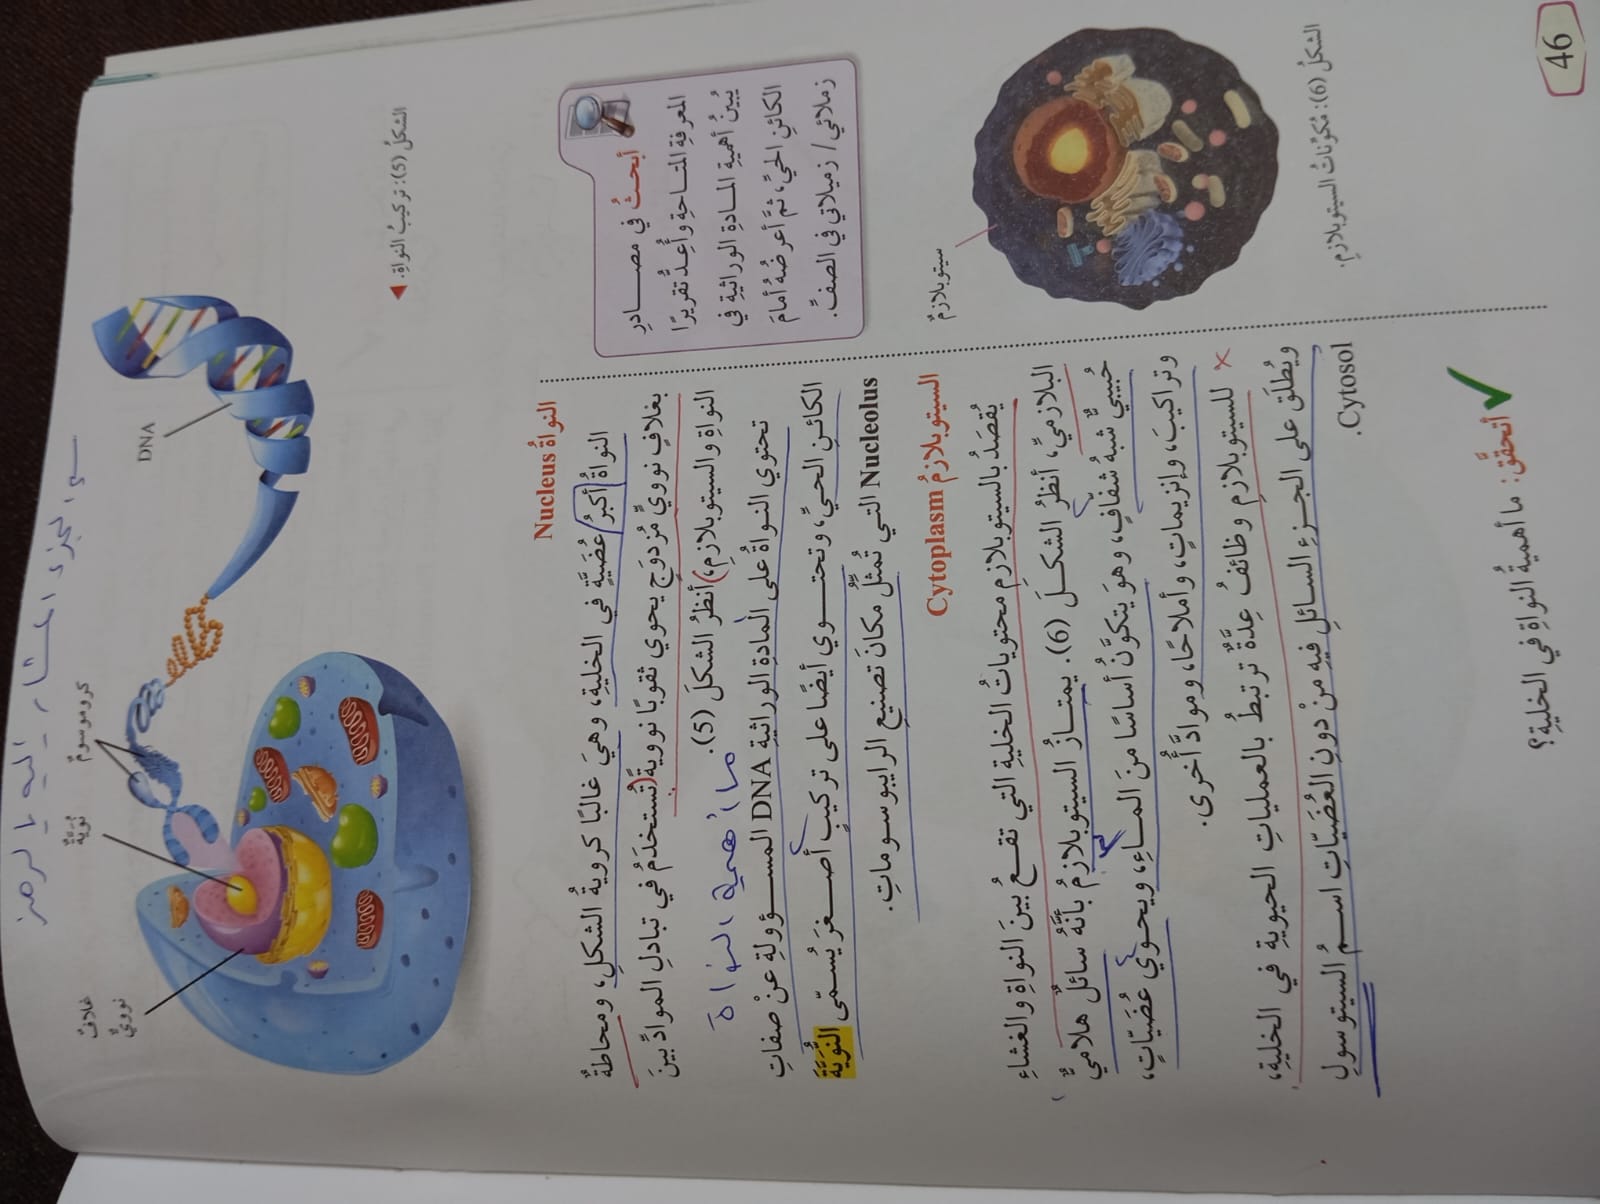 سم الجزء المشار إليه بالرمز
غلافٌ
نوويٌّ
نُوَيَّةٌ
كروموسومٌ
DNA
الشكلُ (5): تركيبُ النواةِ.
النواةُ Nucleus
النواةُ أكبرُ عُضَيَّةٍ في الخليةِ، وهيَ غالبًا كرويةُ الشكلِ، ومحاطةٌ
بغلافٍ نوويٍّ مُزدوَجٍ يحوي ثقوبًا نوويةً (تُستخدَمُ في تبادلِ الموادِّ بينَ
النواةِ والسيتوبلازمِ)، أنظرُ الشكلَ (5).
ما أهمية النواة
تحتوي النواةُ على المادةِ الوراثيةِ DNA المسؤولةِ عنْ صفاتِ
الكائنِ الحيِّ، وتحتوي أيضًا على تركيبٍ أصغرَ يُسمّى النُّوَيَّةَ
Nucleolus التي تُمثِّلُ مكانَ تصنيعِ الرايبوسوماتِ.
أبحثُ في مصادرِ
المعرفةِ المتاحةِ وأُعِدُّ تقريرًا
يبينُ أهميةَ المادةِ الوراثيةِ في
الكائنِ الحيِّ، ثمَّ أعرضُهُ أمامَ
زملائي/ زميلاتي في الصفِّ.
السيتوبلازمُ Cytoplasm
يُقصَدُ بالسيتوبلازمِ محتوياتُ الخليةِ التي تقعُ بينَ النواةِ والغشاءِ
البلازميِّ، أنظرُ الشكلَ (6). يمتازُ السيتوبلازمُ بأنَّهُ سائلٌ هلاميٌّ
حُبيبيٌّ شبهُ شفافٍ، وهوَ يتكوَّنُ أساسًا منَ الماءِ، ويحوي عُضَيّاتٍ،
وتراكيبَ، وإنزيماتٍ، وأملاحًا، وموادَّ أُخرى.
للسيتوبلازمِ وظائفُ عِدَّةٌ ترتبطُ بالعملياتِ الحيويةِ في الخليةِ،
ويُطلَقُ على الجزءِ السائلِ فيهِ منْ دونِ العُضَيّاتِ اسمُ السيتوسولِ
Cytosol.
سيتوبلازمٌ
الشكلُ (6): مُكوِّناتُ السيتوبلازمِ.
✓ أتحقَّقُ: ما أهميةُ النواةِ في الخليةِ؟
46